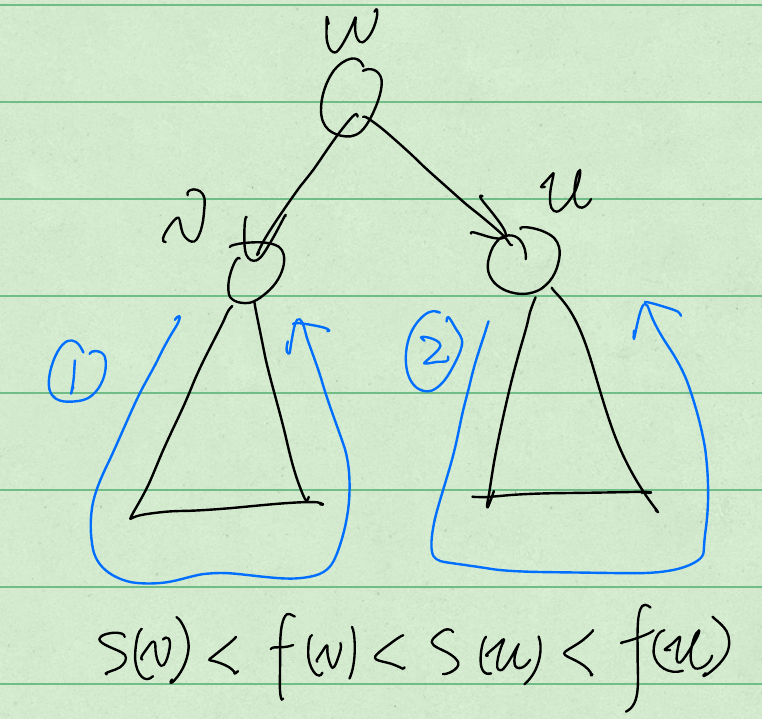 w
v
u
①
②
s(v) < f(v) < s(u) < f(u)